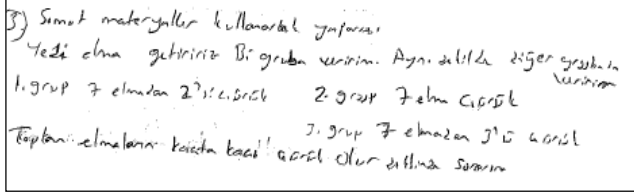 3) Somut materyaller kullanarak yaparım.
Yedi elma getiririz Bi gruba veririm. Aynı şekilde diğer gruplara veririm
1. grup 7 elmadan 2'si çürük 2. grup 7 elma çürük
3. grup 7 elmadan 3'ü çürük
Toplam elmaların kaçta kaçı çürük olur soraram